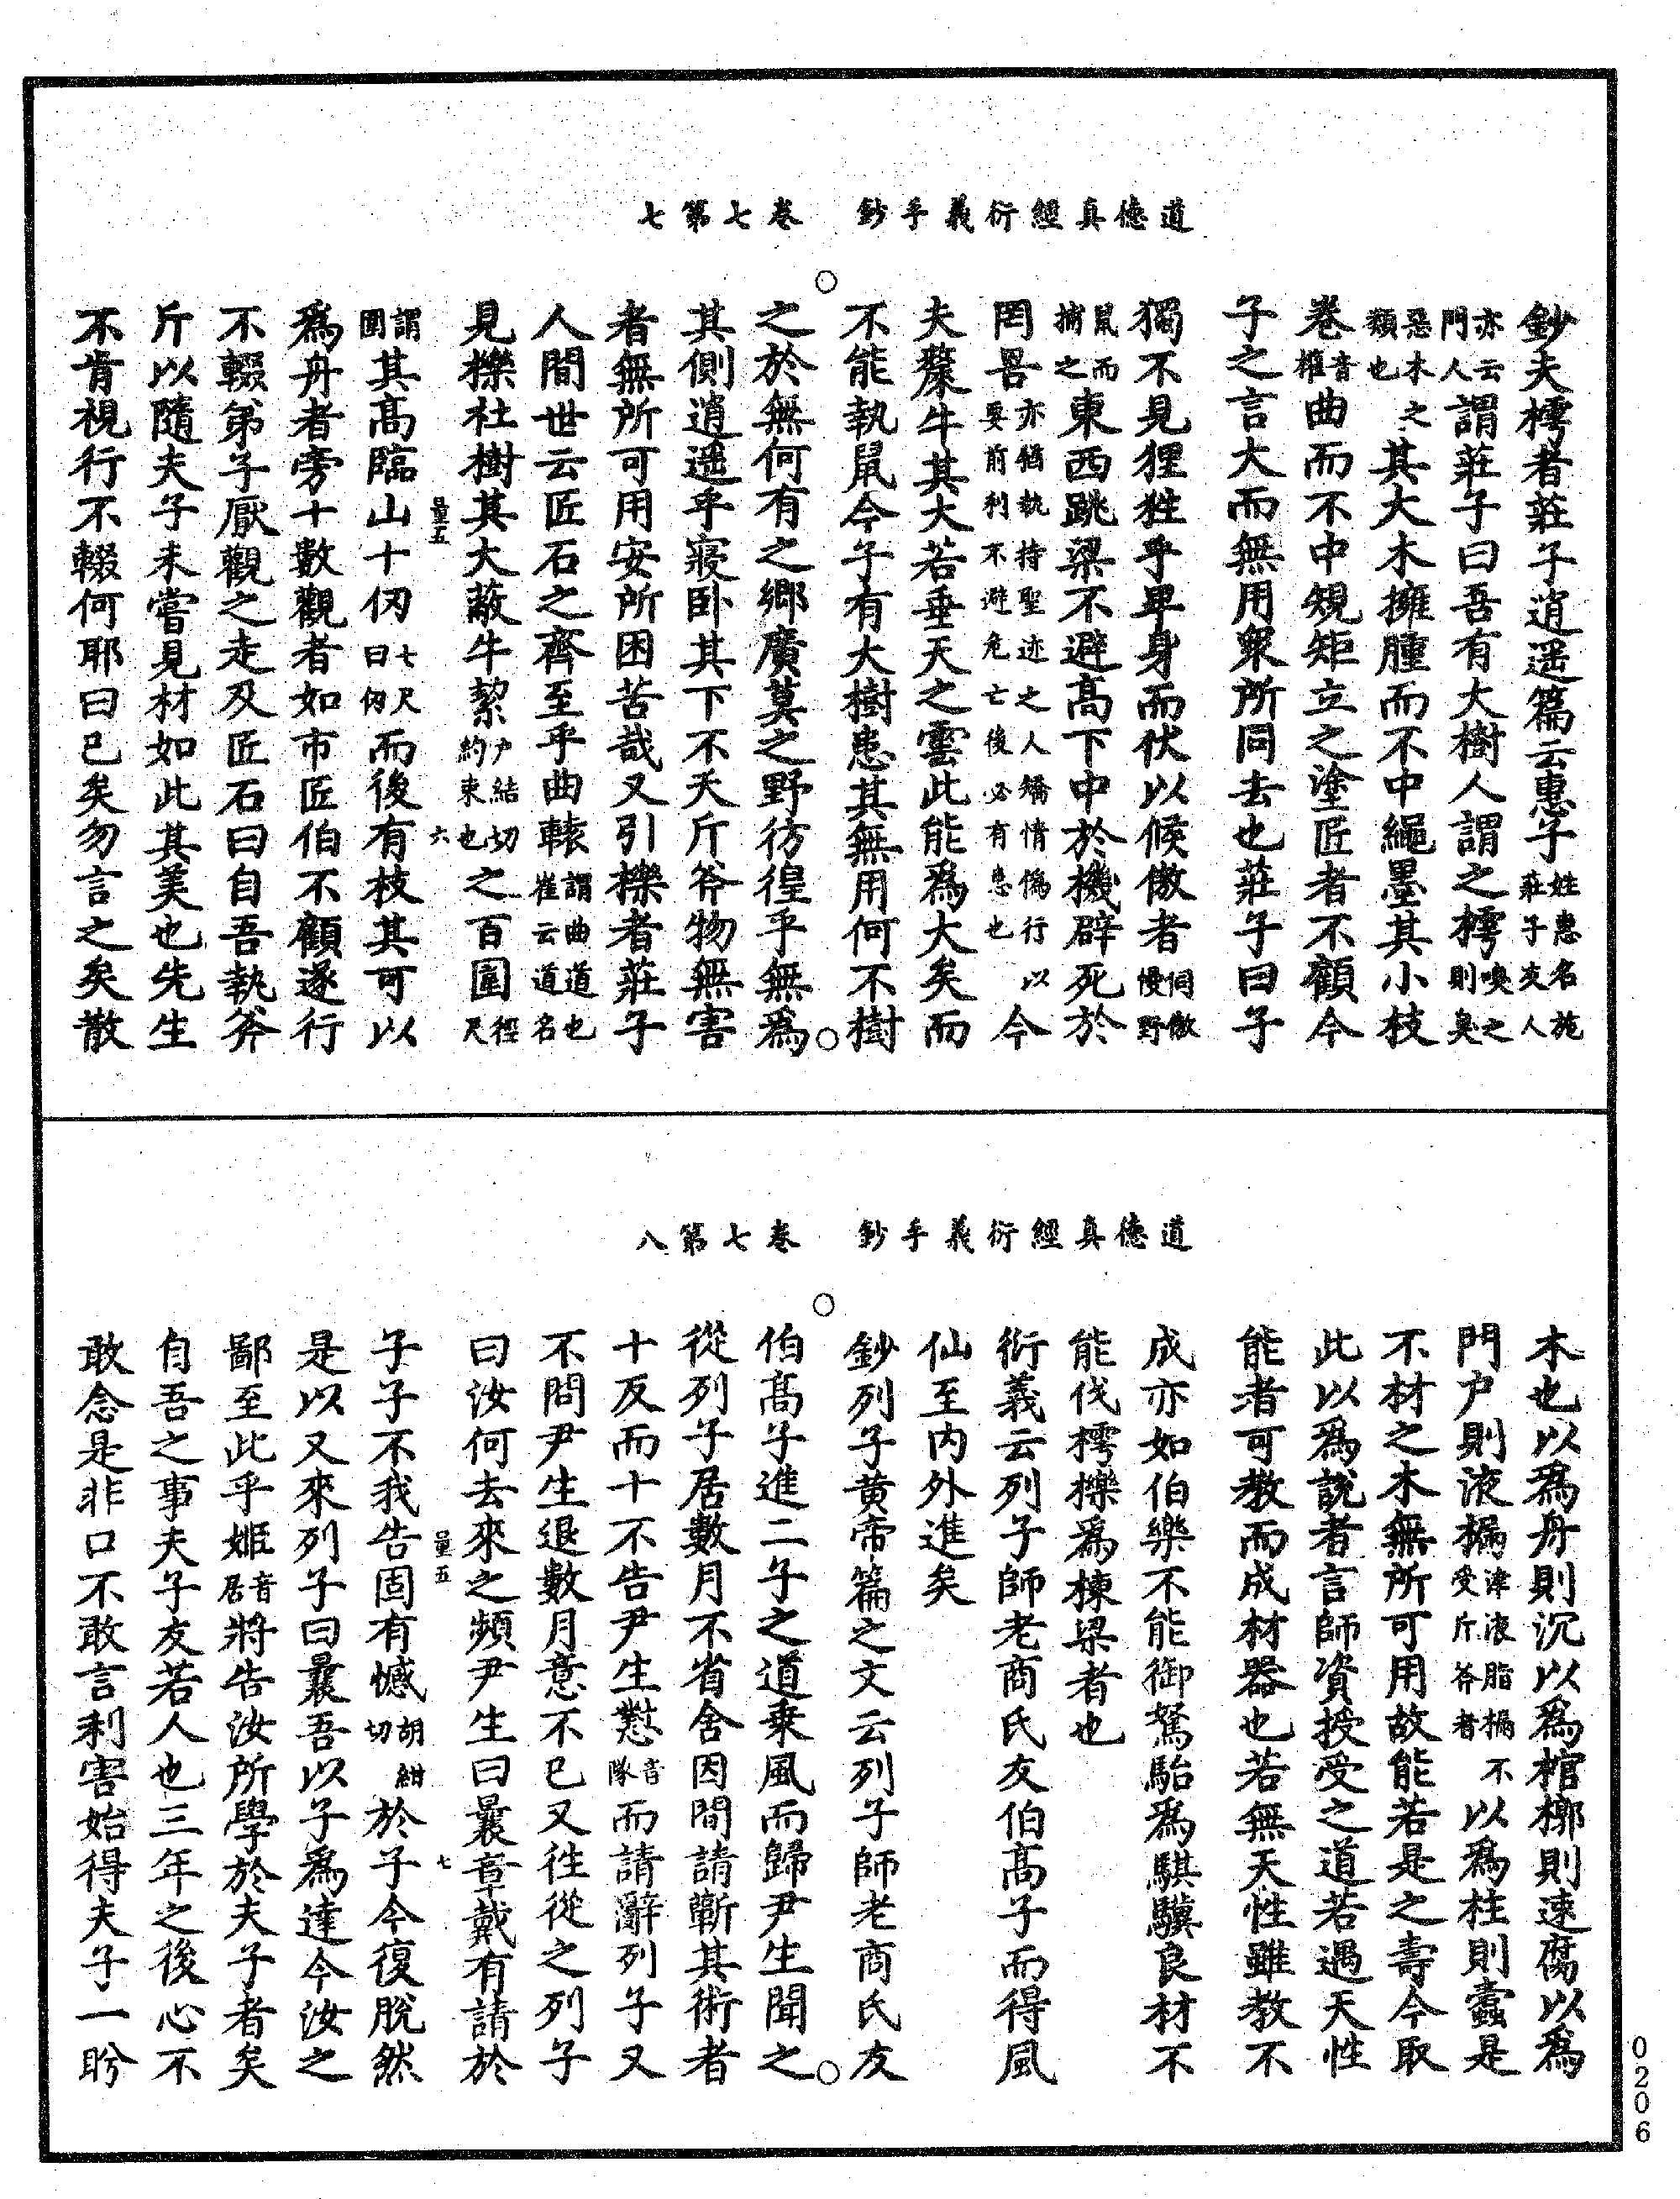 道德真經衍義手鈔　卷七第七
鈔夫樗者莊子逍遥篇云惠子姓惠名施莊子友人
亦云門人謂莊子曰吾有大樹人謂之樗嗅之則臭
惡木之類也其大木擁腫而不中繩墨其小枝
卷音權曲而不中規矩立之塗匠者不顧今
子之言大而無用衆所同去也莊子曰子
獨不見狸狌乎卑身而伏以候傲者伺傲慢野
鼠而捕之東西跳梁不避高下中於機辟死於
罔罟亦猶執持聖迹之人矯情僞行以要前利不避危亡後必有患也今
夫斄牛其大若垂天之雲此能爲大矣而
不能執鼠今子有大樹患其無用何不樹
之於無何有之鄉廣莫之野彷徨乎無爲
其側逍遥乎寢卧其下不夭斤斧物無害
者無所可用安所困苦哉又引櫟者莊子
人間世云匠石之齊至乎曲轅謂曲道也崔云道名
見櫟杜樹其大蔽牛絜户結切約束也之百圍徑尺
量五　六
謂圍其高臨山十仞七尺曰仞而後有枝其可以
爲舟者旁十數觀者如市匠伯不顧遂行
不輟弟子厭觀之走及匠石曰自吾執斧
斤以隨夫子未嘗見材如此其美也先生
不肯視行不輟何耶曰已矣勿言之矣散
道德真經衍義手鈔　卷七第八
木也以爲舟則沉以爲棺槨則速腐以爲
門户則液樠津液脂樠不受斤斧者以爲柱則蠹是
不材之木無所可用故能若是之壽今取
此以爲說者言師資授受之道若遇天性
能者可教而成材器也若無天性雖教不
成亦如伯樂不能御駑駘爲騏驥良材不
能伐樗櫟爲棟梁者也
衍義云列子師老商氏友伯高子而得風
仙至内外進矣
鈔列子黄帝篇之文云列子師老商氏友
伯高子進二子之道乗風而歸尹生聞之
從列子居數月不省舍因間請蘄其術者
十反而十不告尹生懟音隊而請辭列子又
不問尹生退數月意不已又往從之列子
曰汝何去來之頻尹生曰曩章戴有請於
量五　七
子子不我告固有憾胡紺切於子今復脫然
是以又來列子曰曩吾以子爲達今汝之
鄙至此乎姬音居將告汝所學於夫子者矣
自吾之事夫子友若人也三年之後心不
敢念是非口不敢言利害始得夫子一眄
0206